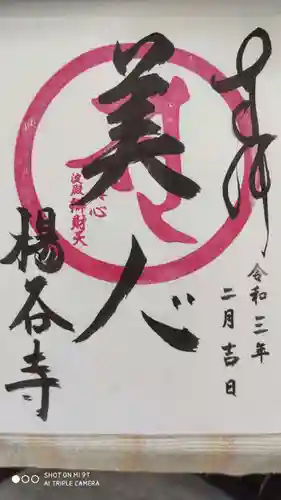 奉拝
令和三年
二月吉日
美人
心
淀殿弁財天
楊谷寺
SHOT ON MI 9T
AI TRIPLE CAMERA